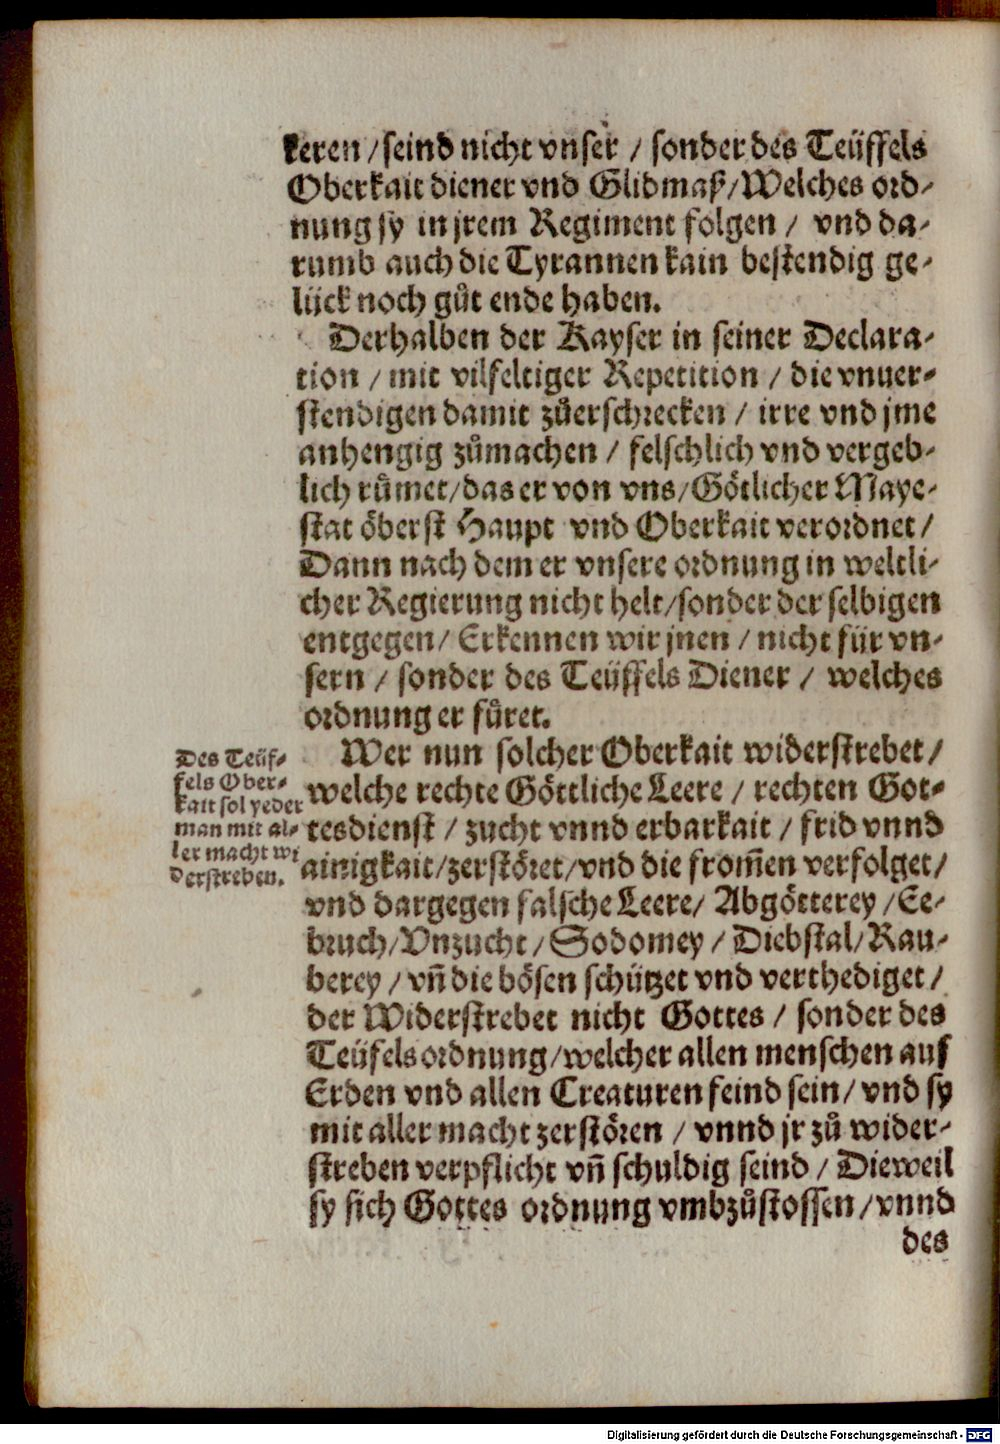 keren / seind nicht vnser / sonder des Teüffels
Oberkait diener vnd Glidmaß / Welches ord-
nung sy in jrem Regiment folgen / vnd da-
rumb auch die Tyrannen kain bestendig ge-
lück noch gůt ende haben.
Derhalben der Kayser in seiner Declara-
tion / mit vilfeltiger Repetition / die vnuer-
stendigen damit zůerschrecken / irre vnd jme
anhengig zůmachen / felschlich vnd vergeb-
lich růmet / das er von vns / Götlicher Maye-
stat öberst Haupt vnd Oberkait verordnet /
Dann nach dem er vnsere ordnung in weltli-
cher Regierung nicht helt / sonder der selbigen
entgegen / Erkennen wir jnen / nicht für vn-
sern / sonder des Teüffels Diener / welches
ordnung er fůret.
Des Teüf-
fels Ober-
kait sol yeder
man mit al-
ler macht wi
derstreben.
Wer nun solcher Oberkait widerstrebet /
welche rechte Göttliche Leere / rechten Got-
tesdienst / zucht vnnd erbarkait / frid vnnd
ainigkait / zerstöret / vnd die from̃en verfolget /
vnd dargegen falsche Leere / Abgötterey / Ee-
bruch / Vnzucht / Sodomey / Diebstal / Rau-
berey / vñ die bösen schützet vnd verthediget /
der Widerstrebet nicht Gottes / sonder des
Teüfels ordnung / welcher allen menschen auf
Erden vnd allen Creaturen feind sein / vnd sy
mit aller macht zerstören / vnnd jr zů wider-
streben verpflicht vñ schuldig seind / Dieweil
sy sich Gottes ordnung vmbzůstossen / vnnd
des
Digitalisierung gefördert durch die Deutsche Forschungsgemeinschaft - DFG